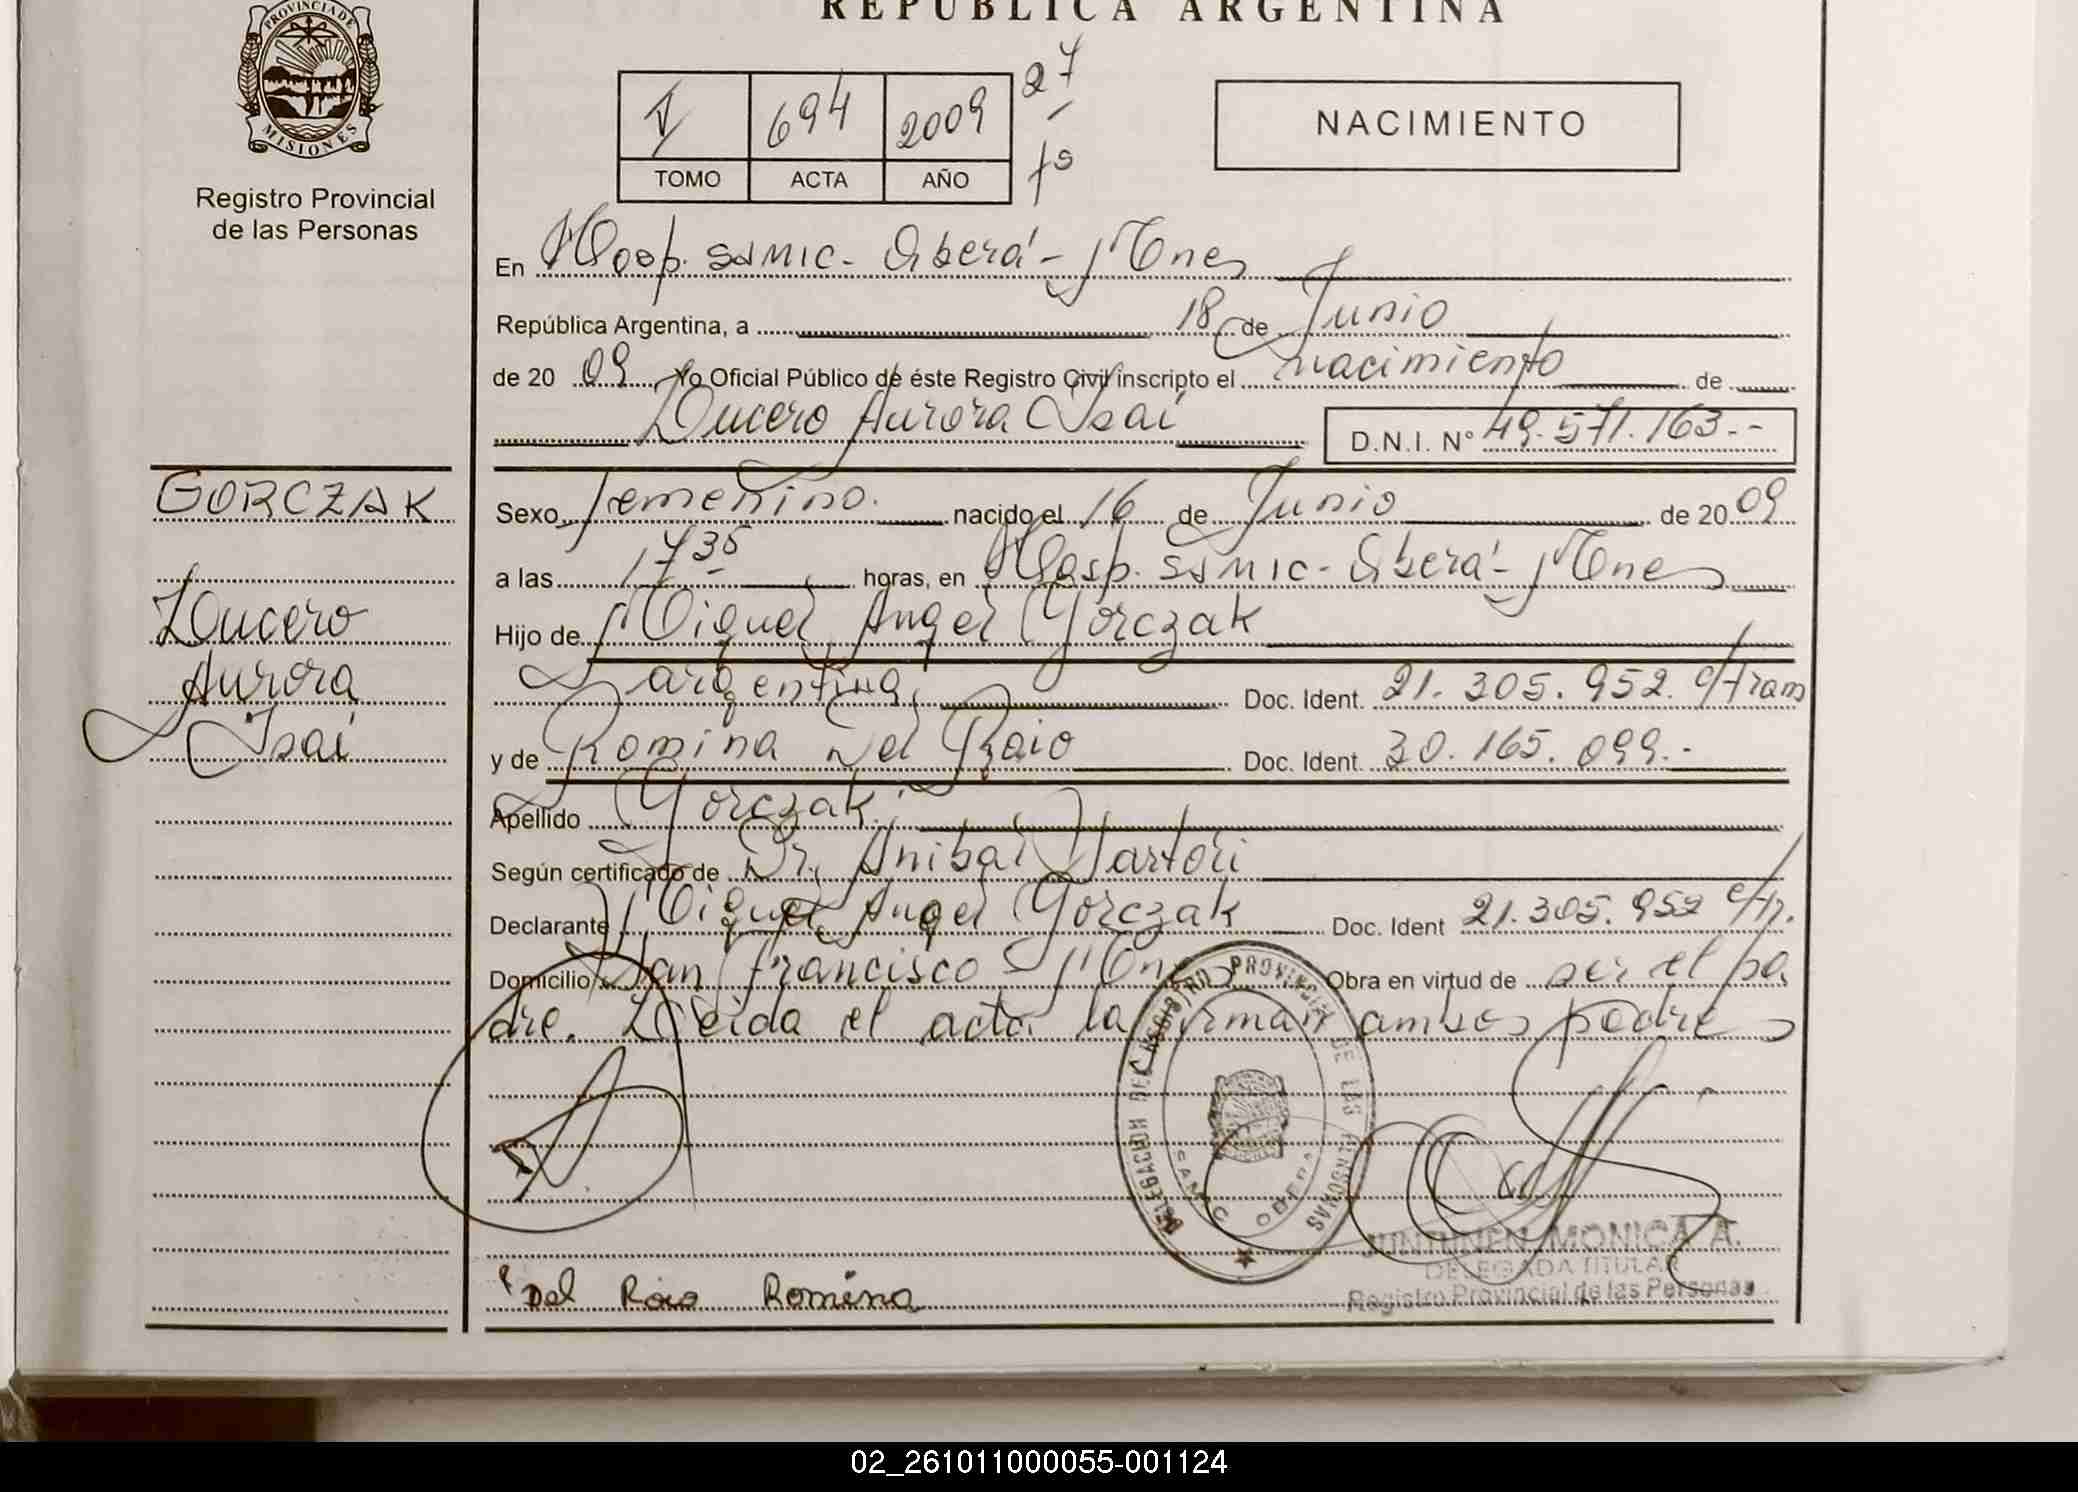 REPÚBLICA ARGENTINA
PROVINCIA DE
MISIONES
Registro Provincial
de las Personas
I 694 2009 27
TOMO ACTA AÑO fº
NACIMIENTO
En Hosp. SAMIC - Oberá - Mnes
República Argentina, a 18 de Junio
de 2009, Yo Oficial Público de éste Registro Civil inscripto el nacimiento de
Lucero Aurora Isai D.N.I. Nº 49.571.163.--
GORCZAK
Lucero
Aurora
Isai
Sexo femenino. nacido el 16 de Junio de 2009
a las 17 35 horas, en Hosp. SAMIC - Oberá - Mnes
Hijo de Miguel Angel Gorczak
argentina, Doc. Ident. 21.305.952. c/tram
y de Romina Del Raio Doc. Ident. 30.165.099.-
Apellido Gorczak.
Según certificado de Dr. Anibal Sartori
Declarante Miguel Angel Gorczak Doc. Ident 21.305.952 c/tr.
Domicilio San Francisco - Mnes Obra en virtud de ser el pa
dre. Leida el acta la firman ambos padres
DELEGACION DEL REGISTRO PROVINCIAL DE LAS PERSONAS
SAMIC OBERA
JUNTUNEN MONICA A.
DELEGADA TITULAR
Registro Provincial de las Personas
Del Raio Romina
02_261011000055-001124